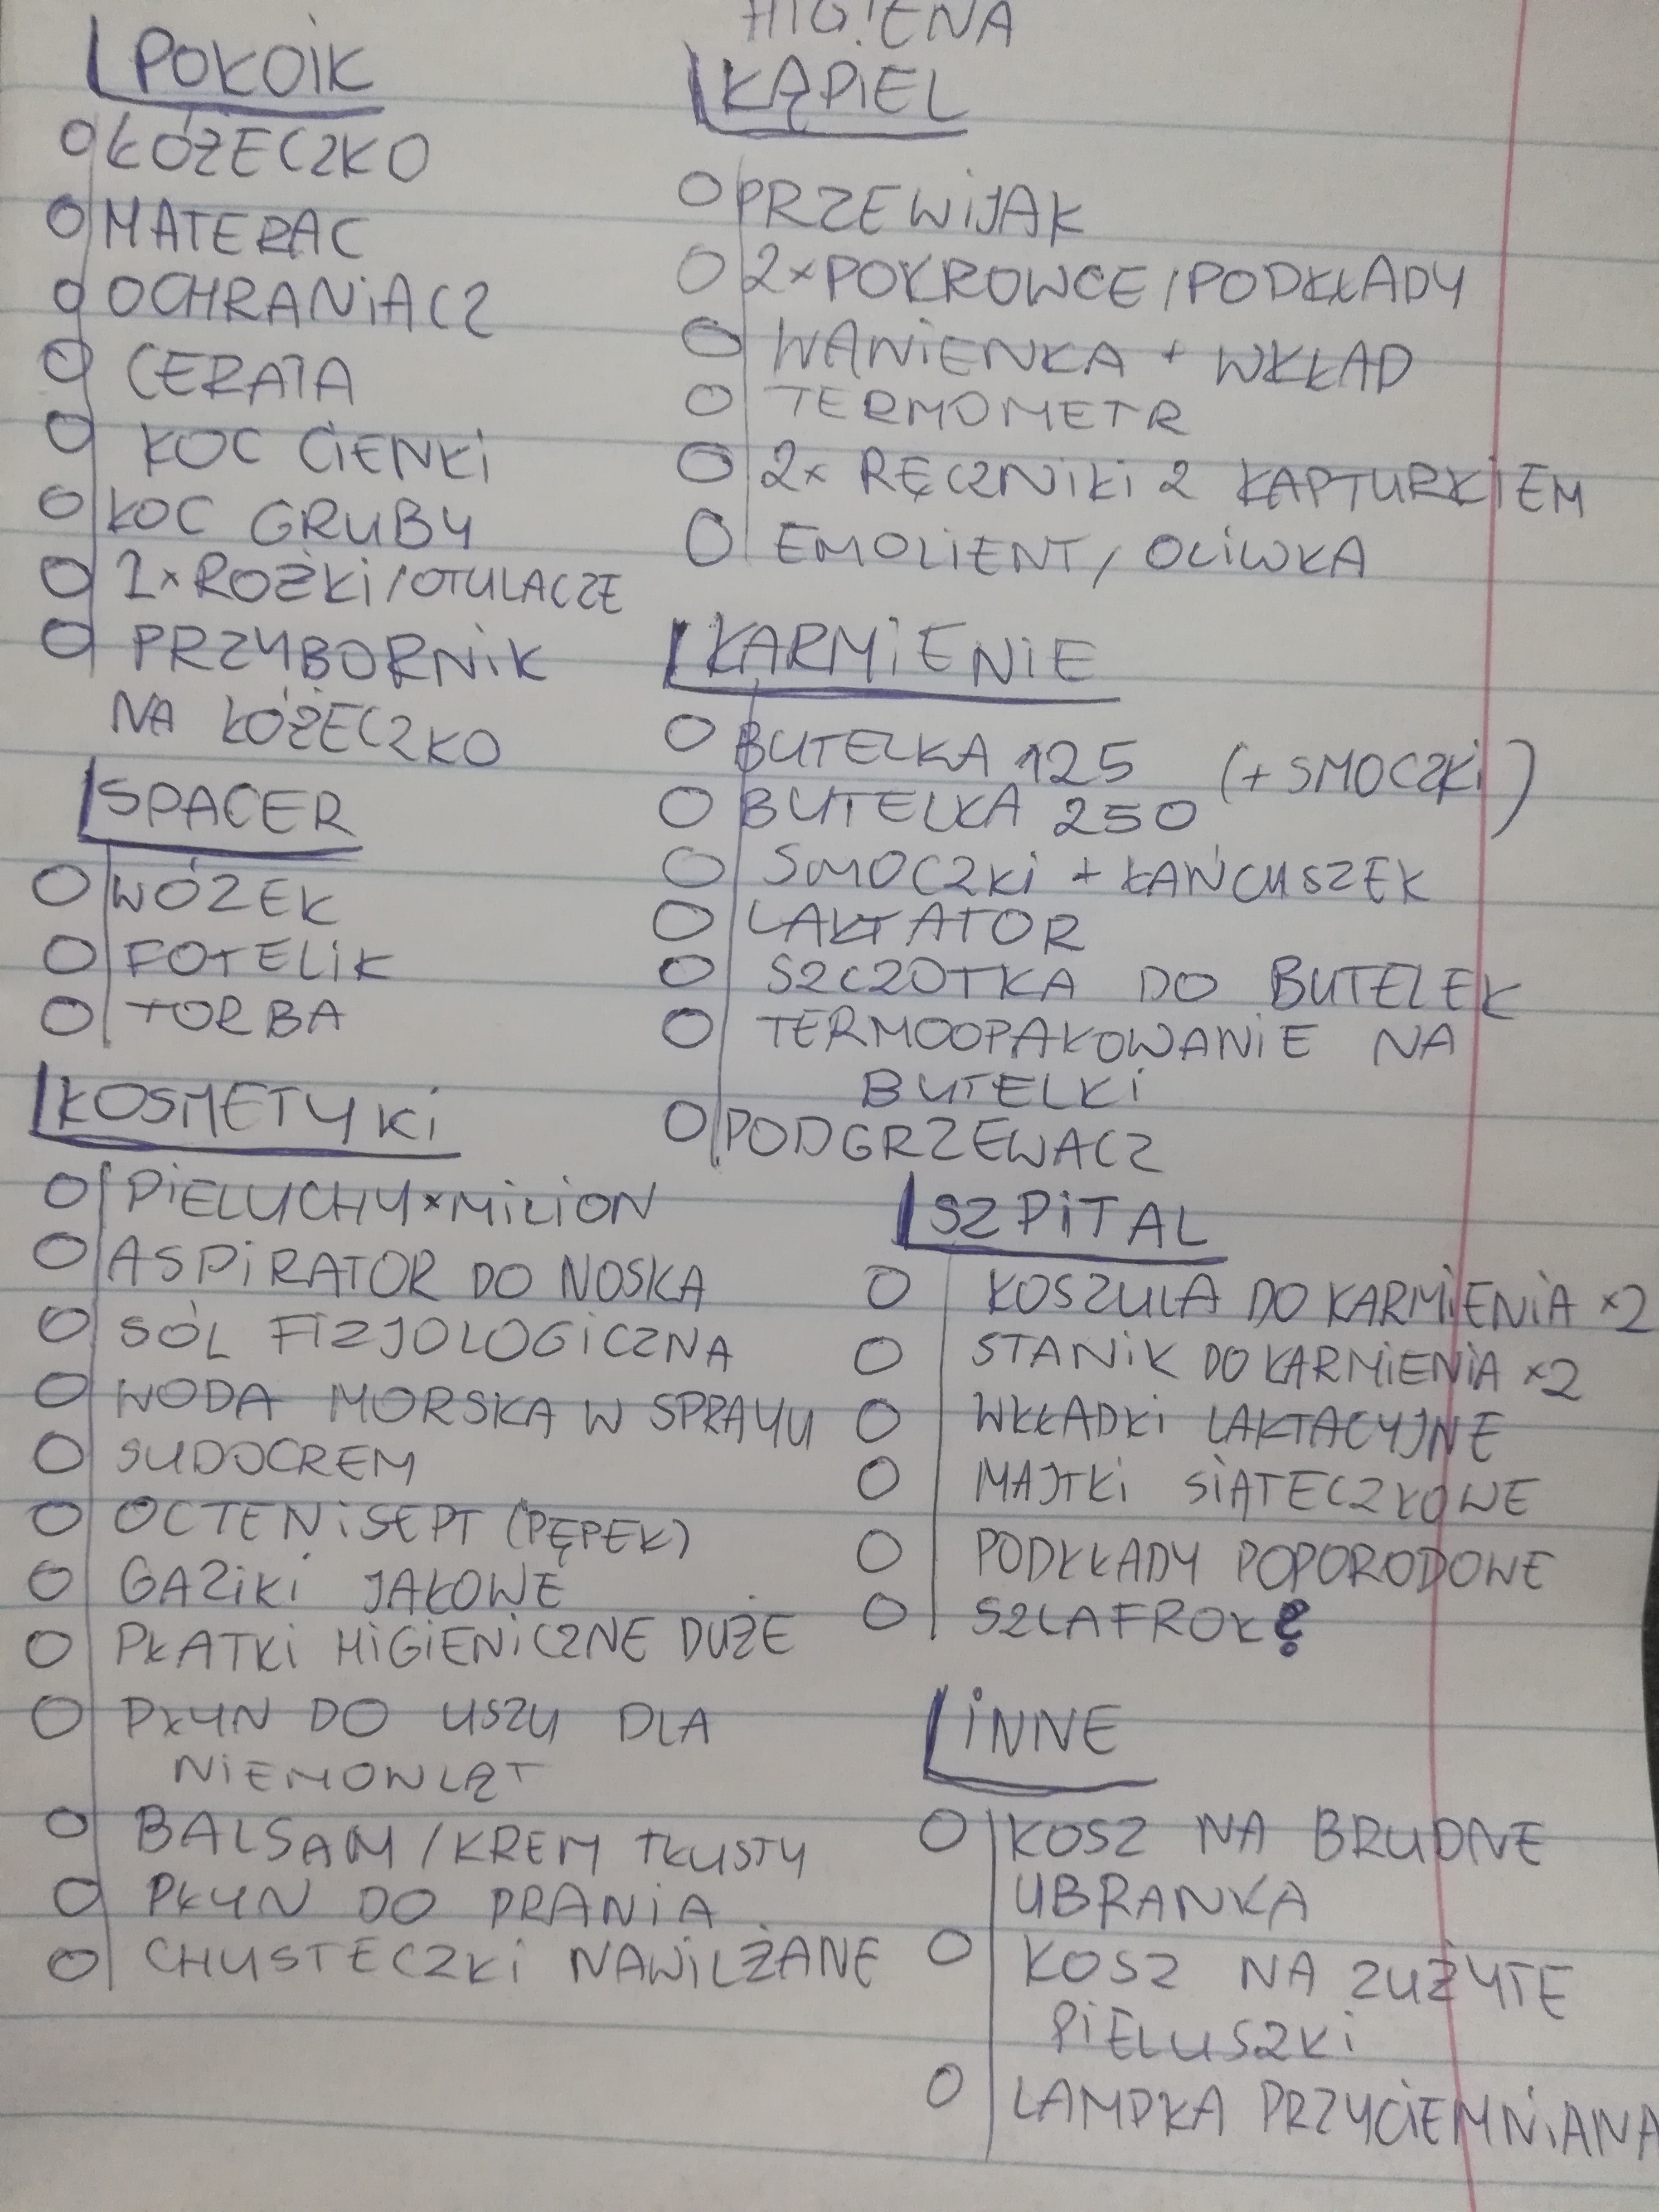 POKOIK
ŁÓŻECZKO
MATERAC
OCHRANIACZ
CERATA
KOC CIENKI
KOC GRUBY
2x ROŻKI/OTULACZE
PRZYBORNIK
NA ŁÓŻECZKO
SPACER
WÓZEK
FOTELIK
TORBA
KOSMETYKI
PIELUCHY x MILION
ASPIRATOR DO NOSKA
SÓL FIZJOLOGICZNA
WODA MORSKA W SPRAYU
SUDOCREM
OCTENISEPT (PĘPEK)
GAZIKI JAŁOWE
PŁATKI HIGIENICZNE DUŻE
PŁYN DO USZU DLA
NIEMOWLĄT
BALSAM/KREM TŁUSTY
PŁYN DO PRANIA
CHUSTECZKI NAWILŻANE
HIGIENA
KĄPIEL
PRZEWIJAK
2x POKROWCE/PODKŁADY
WANIENKA + WKŁAD
TERMOMETR
2x RĘCZNIKI Z KAPTURKIEM
EMOLIENT/OLIWKA
KARMIENIE
BUTELKA 125 (+ SMOCZKI)
BUTELKA 250
SMOCZKI + ŁAŃCUSZEK
LAKTATOR
SZCZOTKA DO BUTELEK
TERMOOPAKOWANIE NA
BUTELKI
PODGRZEWACZ
SZPITAL
KOSZULA DO KARMIENIA x2
STANIK DO KARMIENIA x2
WKŁADKI LAKTACYJNE
MAJTKI SIATECZKOWE
PODKŁADY POPORODOWE
SZLAFROK?
INNE
KOSZ NA BRUDNE
UBRANKA
KOSZ NA ZUŻYTE
PIELUSZKI
LAMPKA PRZYCIEMNIANA